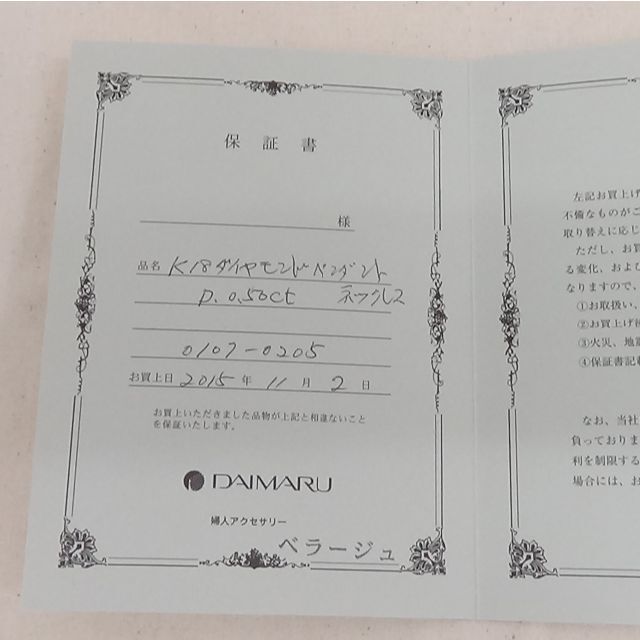 保証書
様
品名 K18ダイヤモンドペンダント
D. 0.50ct ネックレス
0107-0205
お買上日 2015 年 11 月 2 日
お買上いただきました品物が上記と相違ないこと
を保証いたします。
DAIMARU
婦人アクセサリー
ベラージュ
左記お買上げ
不備なものがご
取り替えに応じ
ただし、お買
る変化、および
なりますので、
①お取扱い、
②お買上げ後
③火災、地震
④保証書記載
なお、当社
負っておりま
利を制限する
場合には、お